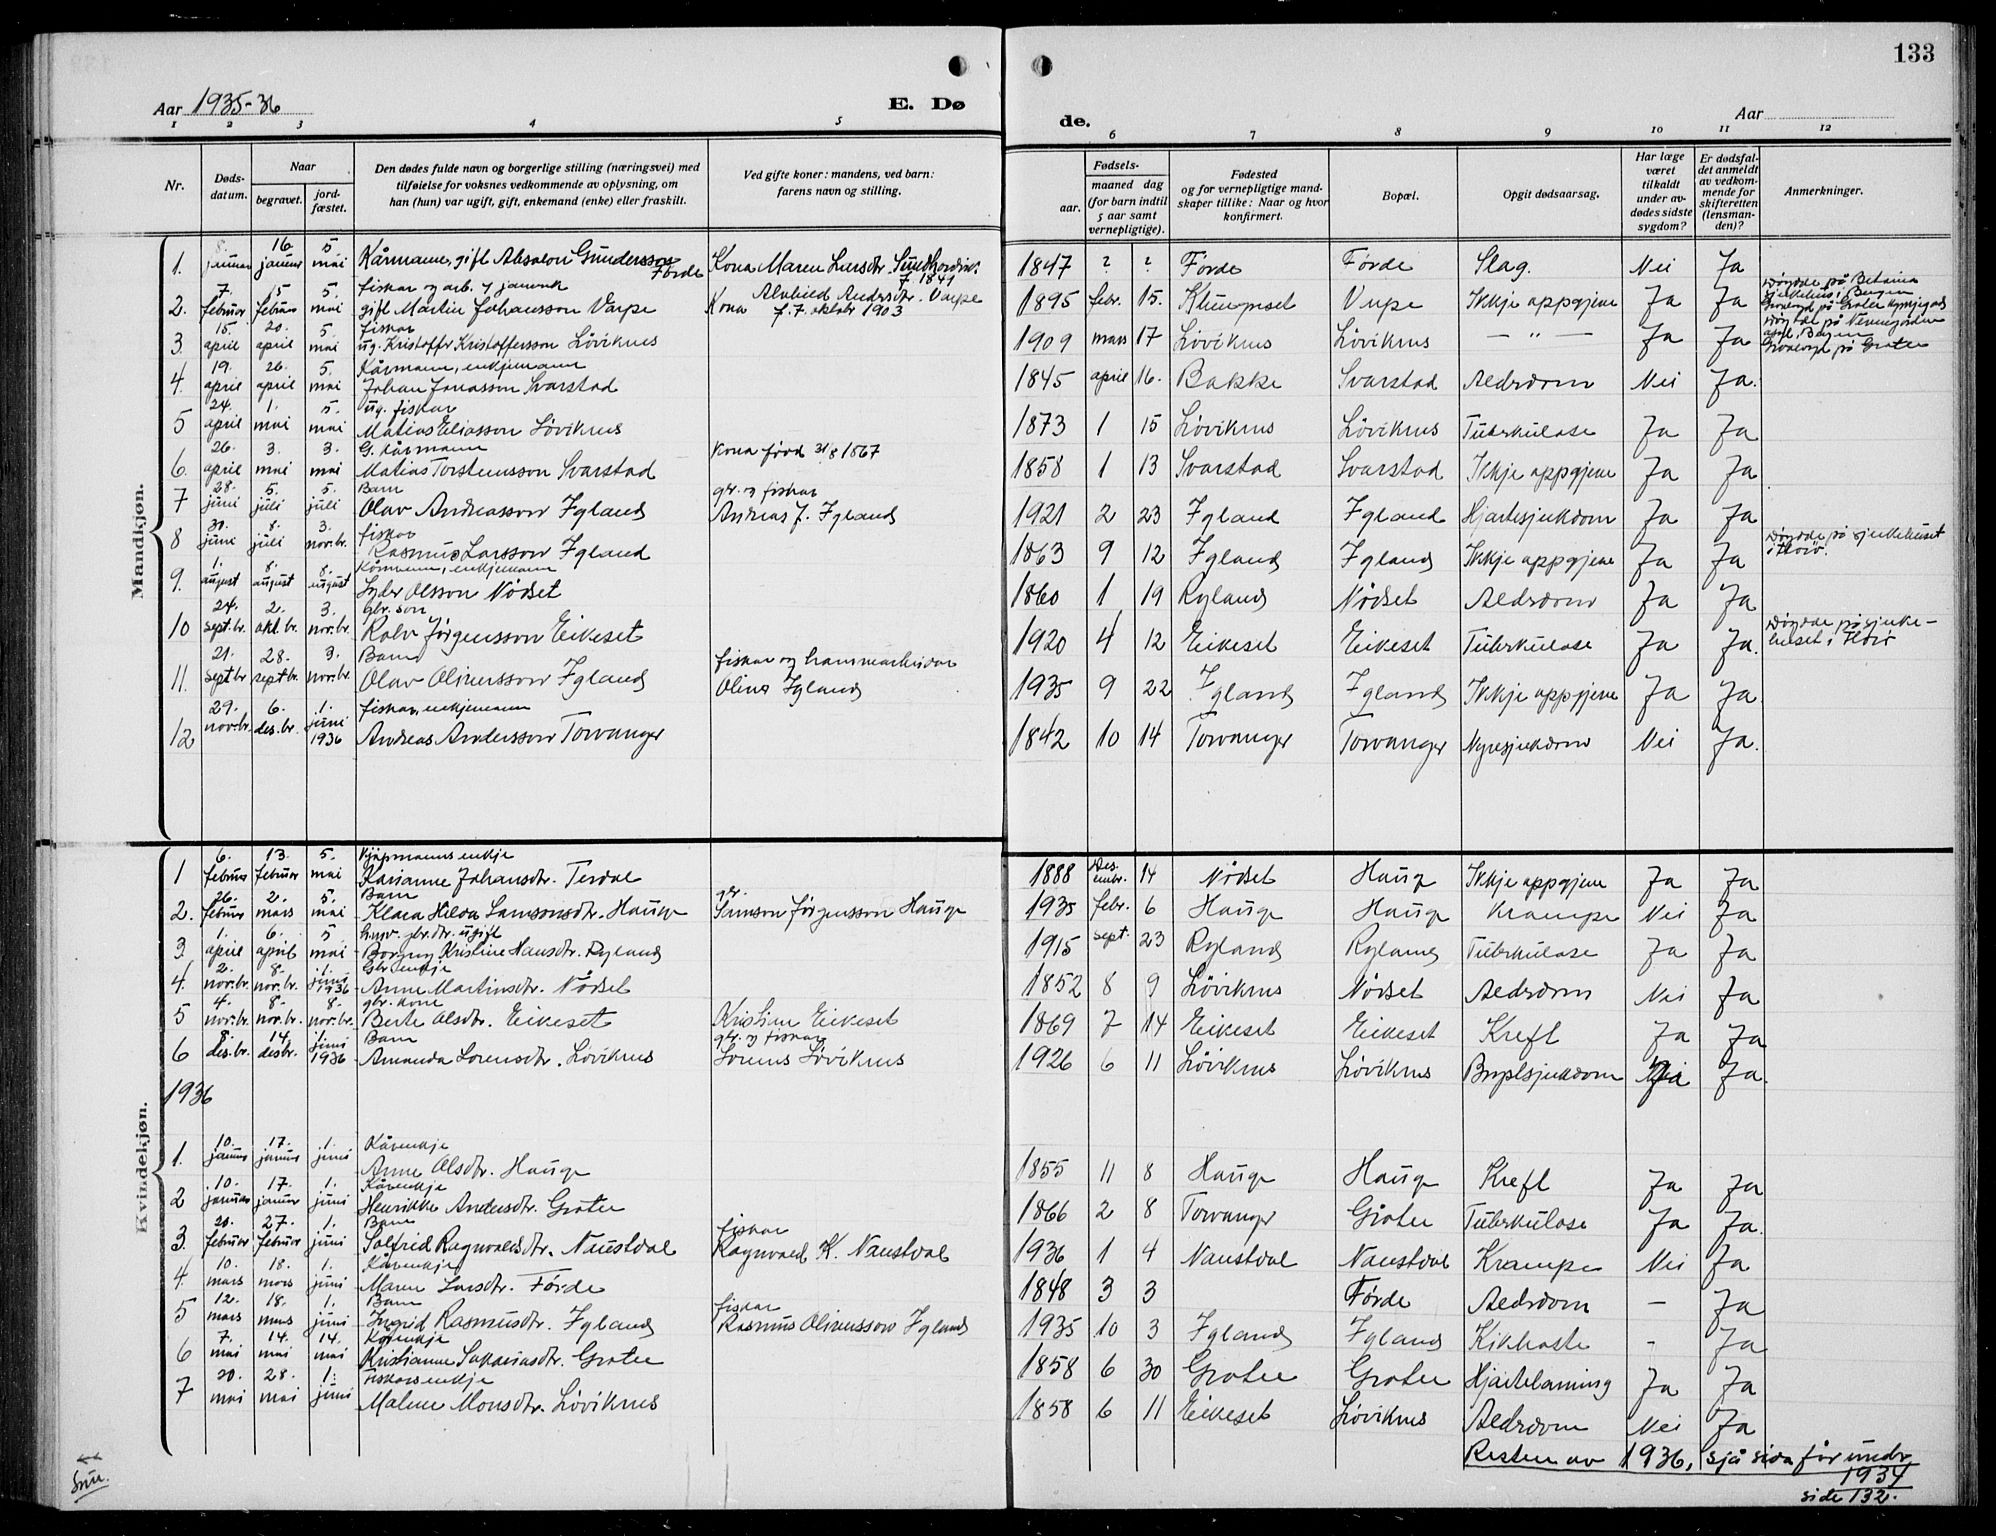 133
Aar 1935-36
E. Dø
de.
Aar
1 2 3 4 5 6 7 8 9 10 11 12
Nr.
Døds-
datum.
Naar
begravet.
jord-
fæstet.
Den dødes fulde navn og borgerlige stilling (næringsvei) med
tilføielse for voksnes vedkommende av oplysning, om
han (hun) var ugift, gift, enkemand (enke) eller fraskilt.
Ved gifte koner: mandens, ved barn:
farens navn og stilling.
Fødsels-
aar.
maaned dag
(for barn indtil
5 aar samt
vernepligtige).
Fødested
og for vernepligtige mand-
skaper tillike: Naar og hvor
konfirmert.
Bopæl.
Opgit dødsaarsag.
Har læge
været
tilkaldt
under av-
dødes sidste
sygdom?
Er dødsfal-
det anmeldt
av vedkom-
mende for
skifteretten
(lensman-
den)?
Anmerkninger.
Mandkjøn.
1. 8. januar 16. januar 5. mai Kårmann, gift Absalon Gundersson Førde Kona Maren Larsdtr. f. 1847 ? ? Førde Førde Slag. Nei Ja
2. 7. februar 15. februar 5. mai fiskar og arb. gift Martin Johansson Varpe Kona Alvhild Andersdtr. Varpe f. 7. oktobr 1903 1895 febr. 15. Varpe Ikkje oppgjeve Ja Ja døydde på Betania sjukehus i Bergen
3. 15. april 20. april 5. mai fiskar ug. Kristoffer Kristoffersson Løviknes 1909 mars 17 Løviknes Løviknes — " — Ja Ja
4. 19. april 26. april 5. mai Kårmann, enkjemann Johan Jonasson Svarstad 1845 april 16. Bakke Svarstad Aldrdom Nei Ja.
5 24. april 1. mai 5. mai ug. fiskar Matias Eliasson Løviknes 1873 1 15 Løviknes Løviknes Tuberkulose Ja Ja
6. 26. april 3. mai 3. mai G. kårmann Matias Torstensson Svarstad Kona fødd 31/8 1867 1858 1 13 Svarstad Svarstad Ikkje oppgjeve Ja Ja
7 28. juni 5. juli 5. juli Barn Olav Andreasson Igland gbr. og fiskar Andreas J. Igland 1921 2 23 Igland Igland Hjartesjukdom Ja Ja
8 30. juni 8. juli 3. nov.br. fiskar Rasmus Larsson Igland 1863 9 12 Igland Igland Ikkje oppgjeve Ja Ja døydde på sjukehuset i Florø.
9. 1. august 8. august 8. august Kårmann, enkjemann Lyder Olsson Nødset 1860 1 19 Rylands Nødset Aldrdom Ja Ja
10 24. sept.br. 2. okt.br. 3. nov.br. gbr. son Rolv Jørgensson Eikeset 1920 4 12 Eikeset Eikeset Tuberkulose Ja Ja. døydde på sjuke-
huset i Florø
11. 21. septbr 28. septbr. 3. nov.br. Barn Olav Oliversson Igland fiskar og Oliver Igland 1935 9 22 Igland Igland Ikkje oppgjeve Ja Ja.
12 29. nov.br. 6. des.br. 1. juni 1936 fiskar, enkjemann Andreas Andersson Torvanger 1842 10 14 Torvanger Torvanger Nyresjukdom Nei Ja.
Kvindekjøn.
1 6. februar 13. februar 5. mai Kjøpmanns enkje Karianne Johansdtr. Terdal 1888 Des-
embr. 14 Nødset Hauge Ikkje oppgjeve Ja Ja
2. 26. februar 2. mars 5. mai Barn Klara Hilda Samsonsdtr. Hauge gbr. Samson Jørgensson Hauge 1935 febr. 6 Hauge Hauge Krampe Nei Ja
3. 1. april 6. april 5 mai gbr. dtr. ugift Borgny Kristine Hansdtr. Ryland 1915 sept. 23 Ryland Ryland Tuberkulose Ja Ja
4. 2. nov.br. 8. nov.br. 1. juni 1936 Gbr. enkje Anne Martinsdtr. Nødset 1852 8 9 Løviknes Nødset Aldrdom Nei Ja
5 4. nov.br. 8. nov.br. 8. nov.br. gbr. kone Berte Olsdtr. Eikeset Kristian Eikeset 1869 7 14 Eikeset Eikeset Kreft Ja Ja
6 8. des.br. 14. desbr. juni 1936 Barn Amanda Lorensdtr. Løviknes gbr. og fiskar Lorens Løviknes 1926 6 11 Løviknes Løviknes Brystsjukdom Ja.
1936
1. 10. januar 17. januar 1. juni Kårenkje Anne Olsdtr. Hauge 1855 11 8 Hauge Hauge Kreft Ja Ja
2 10. januar 17. januar 1. juni Kårenkje Henrikke Andersdtr. Grotle 1866 2 8 Torvanger Grotle Tuberkulose Ja Ja.
3. 20. februar 27. februar 1. juni Barn Solfrid Ragnvaldsdtr. Naustdal fiskar Ragnvald K. Naustdal 1936 1 4 Naustdal Naustdal Krampe Nei Ja
4. 10. mars 18. mars 1. juni Kårenkje Maren Larsdtr. Førde 1848 3 3 Førde Aldrdom – Ja
5 12. mars 18. mars 1. juni Barn Ingrid Rasmusdtr. Igland fiskar Rasmus Oliversson Igland 1935 10 3 Igland Igland Kikhoste - Ja
6 7. mai 14. mai 14. mai Kårenkje Kristianne Sakariasdtr. Grotle 1858 6 30 Grotle Grotle Hjartelaming Ja Ja
7 20. mai 28. mai 1. juni Fiskars enkje Malene Monsdtr. Løviknes 1858 6 11 Eikeset Løviknes Aldrdom Nei Ja
Resten av 1936, sjå sida før under
1934
side 132.
Snu.